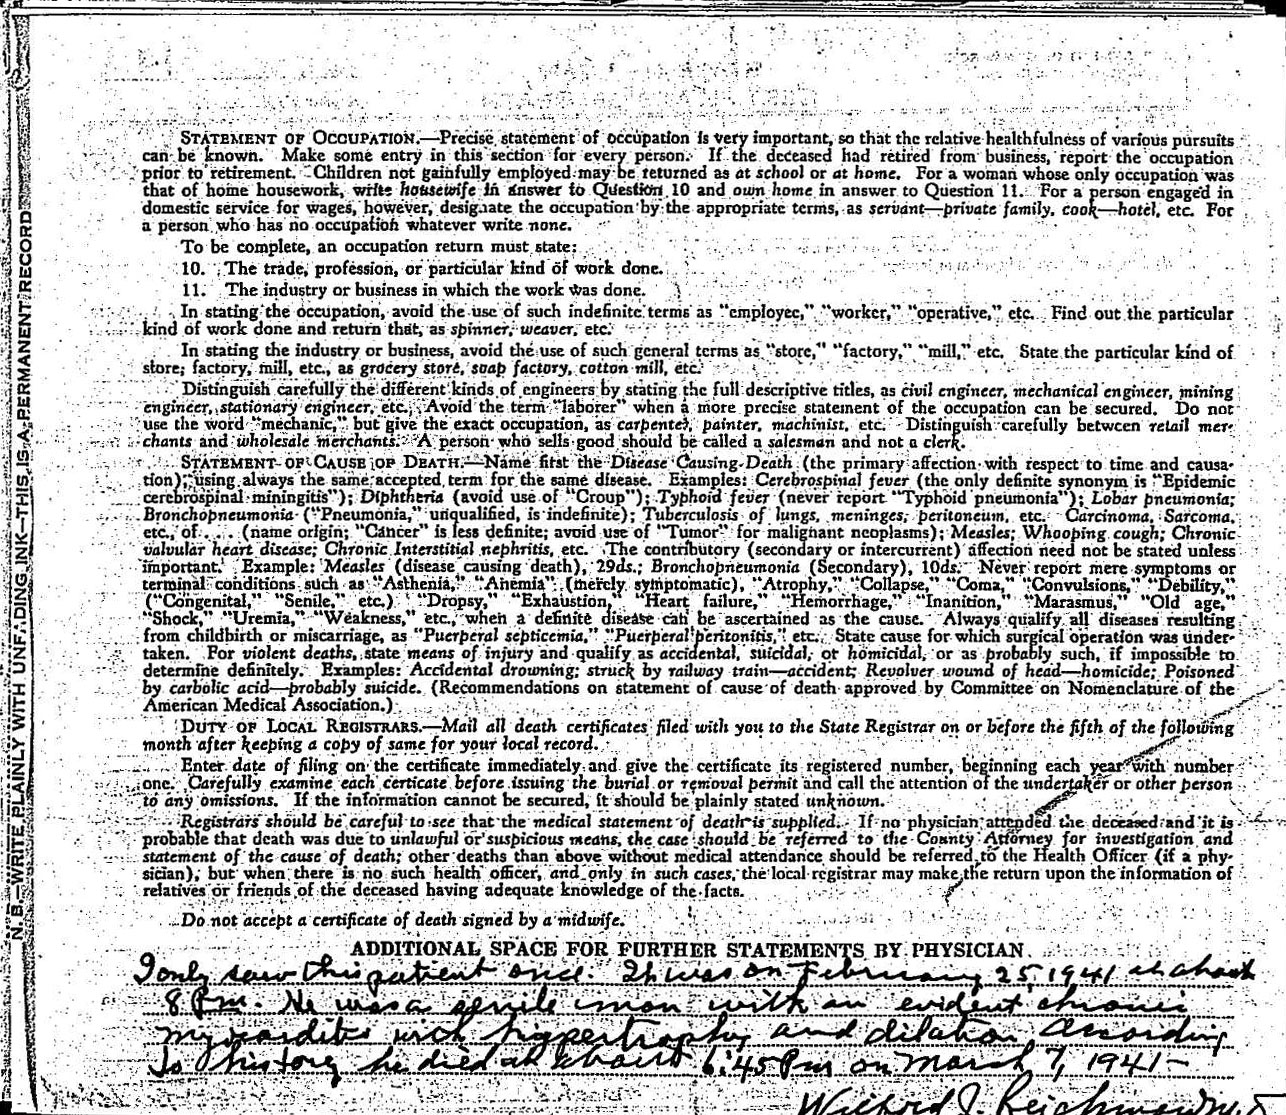 STATEMENT OF OCCUPATION.—Precise statement of occupation is very important, so that the relative healthfulness of various pursuits
can be known. Make some entry in this section for every person. If the deceased had retired from business, report the occupation
prior to retirement. Children not gainfully employed may be returned as at school or at home. For a woman whose only occupation was
that of home housework, write housewife in answer to Question 10 and own home in answer to Question 11. For a person engaged in
domestic service for wages, however, designate the occupation by the appropriate terms, as servant—private family, cook—hotel, etc. For
a person who has no occupation whatever write none.
To be complete, an occupation return must state:
10. The trade, profession, or particular kind of work done.
11. The industry or business in which the work was done.
In stating the occupation, avoid the use of such indefinite terms as "employee," "worker," "operative," etc. Find out the particular
kind of work done and return that, as spinner, weaver, etc.
In stating the industry or business, avoid the use of such general terms as "store," "factory," "mill," etc. State the particular kind of
store, factory, mill, etc., as grocery store, soap factory, cotton mill, etc.
Distinguish carefully the different kinds of engineers by stating the full descriptive titles, as civil engineer, mechanical engineer, mining
engineer, stationary engineer, etc. Avoid the term "laborer" when a more precise statement of the occupation can be secured. Do not
use the word "mechanic," but give the exact occupation, as carpenter, painter, machinist, etc. Distinguish carefully between retail mer-
chants and wholesale merchants. A person who sells good should be called a salesman and not a clerk.
STATEMENT OF CAUSE OF DEATH.—Name first the Disease Causing Death (the primary affection with respect to time and causa-
tion), using always the same accepted term for the same disease. Examples: Cerebrospinal fever (the only definite synonym is "Epidemic
cerebrospinal miningitis"); Diphtheria (avoid use of "Croup"); Typhoid fever (never report "Typhoid pneumonia"); Lobar pneumonia;
Bronchopneumonia ("Pneumonia," unqualified, is indefinite); Tuberculosis of lungs, meninges, peritoneum, etc. Carcinoma, Sarcoma,
etc., of . . . (name origin; "Cancer" is less definite; avoid use of "Tumor" for malignant neoplasms); Measles; Whooping cough; Chronic
valvular heart disease; Chronic Interstitial nephritis, etc. The contributory (secondary or intercurrent) affection need not be stated unless
important. Example: Measles (disease causing death), 29ds.; Bronchopneumonia (Secondary), 10ds. Never report mere symptoms or
terminal conditions such as "Asthenia," "Anemia" (merely symptomatic), "Atrophy," "Collapse," "Coma," "Convulsions," "Debility,"
("Congenital," "Senile," etc.) "Dropsy," "Exhaustion," "Heart failure," "Hemorrhage," "Inanition," "Marasmus," "Old age,"
"Shock," "Uremia," "Weakness," etc., when a definite disease can be ascertained as the cause. Always qualify all diseases resulting
from childbirth or miscarriage, as "Puerperal septicemia," "Puerperal peritonitis," etc. State cause for which surgical operation was under-
taken. For violent deaths, state means of injury and qualify as accidental, suicidal, or homicidal, or as probably such, if impossible to
determine definitely. Examples: Accidental drowning; struck by railway train—accident; Revolver wound of head—homicide; Poisoned
by carbolic acid—probably suicide. (Recommendations on statement of cause of death approved by Committee on Nomenclature of the
American Medical Association.)
DUTY OF LOCAL REGISTRARS.—Mail all death certificates filed with you to the State Registrar on or before the fifth of the following
month after keeping a copy of same for your local record.
Enter date of filing on the certificate immediately and give the certificate its registered number, beginning each year with number
one. Carefully examine each certicate before issuing the burial or removal permit and call the attention of the undertaker or other person
to any omissions. If the information cannot be secured, it should be plainly stated unknown.
Registrars should be careful to see that the medical statement of death is supplied. If no physician attended the deceased and it is
probable that death was due to unlawful or suspicious means, the case should be referred to the County Attorney for investigation and
statement of the cause of death; other deaths than above without medical attendance should be referred to the Health Officer (if a phy-
sician), but when there is no such health officer, and only in such cases, the local registrar may make the return upon the information of
relatives or friends of the deceased having adequate knowledge of the facts.
Do not accept a certificate of death signed by a midwife.
ADDITIONAL SPACE FOR FURTHER STATEMENTS BY PHYSICIAN
I only saw this patient once. It was on February 25, 1941 at about
8 P.m. He was a senile man with an evident chronic
myocarditis with hypertrophy and dilation. According
to history he died at about 6:45 P.m on March 7, 1941-
Wilfred J.
N. B.—WRITE PLAINLY WITH UNFADING INK—THIS IS A PERMANENT RECORD